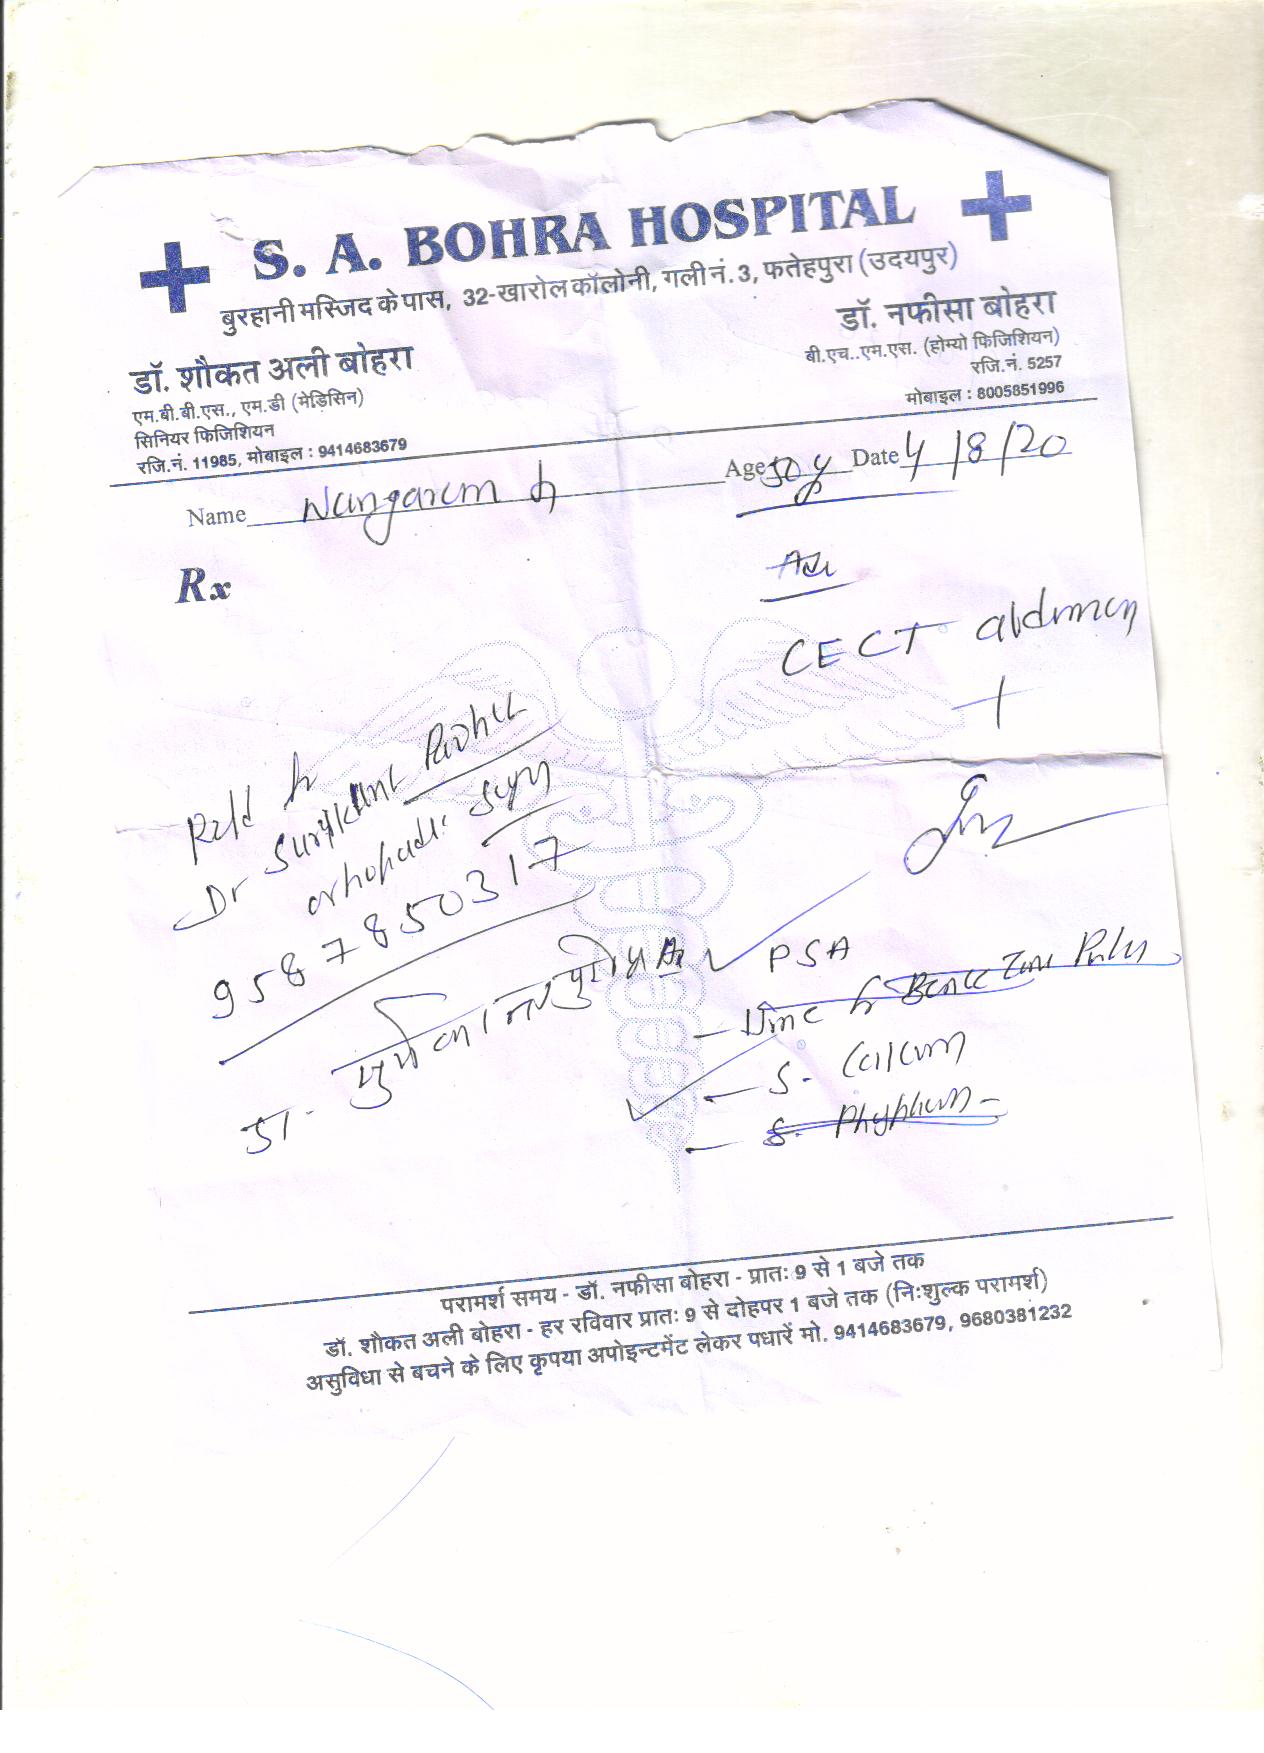 S. A. BOHRA HOSPITAL
बुरहानी मस्जिद के पास, 32-खारोल कॉलोनी, गली नं. 3, फतेहपुरा (उदयपुर)
डॉ. शौकत अली बोहरा
एम.बी.बी.एस., एम.डी (मेडिसिन)
सिनियर फिजिशियन
रजि.नं. 11985, मोबाइल : 9414683679
डॉ. नफीसा बोहरा
बी.एच..एम.एस. (होम्यो फिजिशियन)
रजि.नं. 5257
मोबाइल : 8005851996
Name Age 50 y Date 4/8/20
Rx
CECT abdomen
+
Dr
9587850317
डा.
PSA
S. Calcium
परामर्श समय - डॉ. नफीसा बोहरा - प्रातः 9 से 1 बजे तक
डॉ. शौकत अली बोहरा - हर रविवार प्रातः 9 से दोहपर 1 बजे तक (निःशुल्क परामर्श)
असुविधा से बचने के लिए कृपया अपोइन्टमेंट लेकर पधारें मो. 9414683679, 9680381232